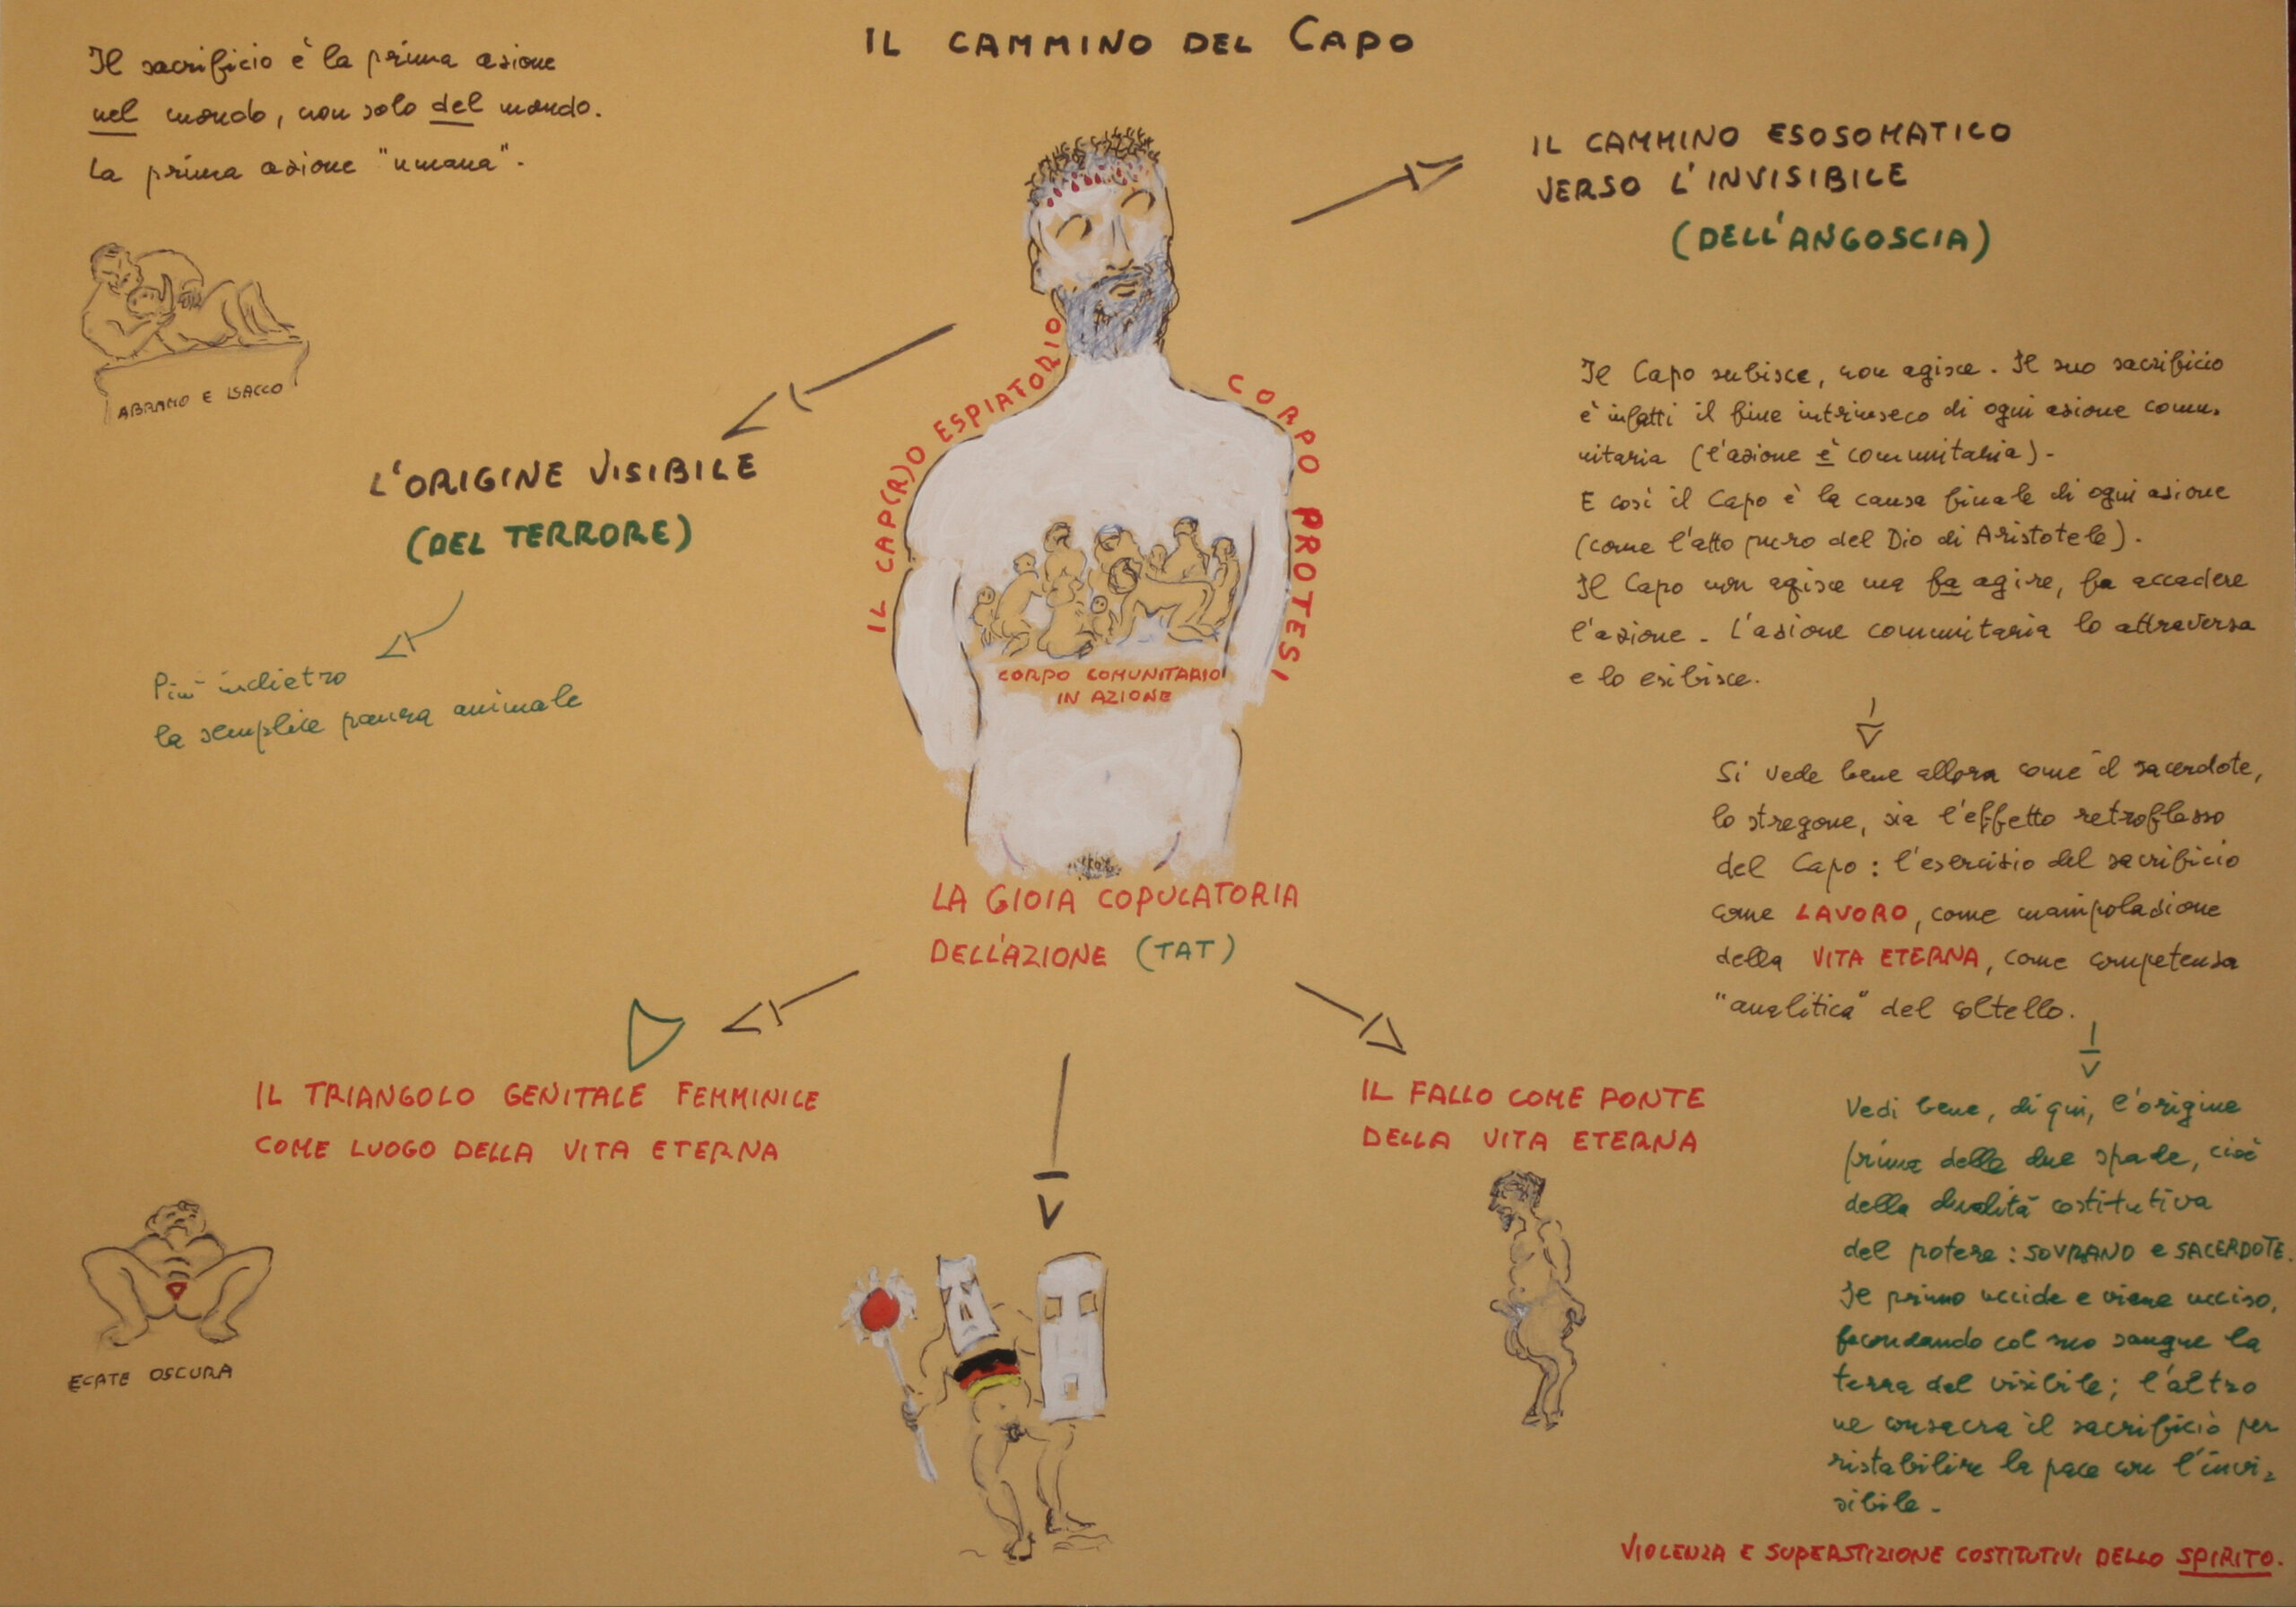 IL CAMMINO DEL CAPO
Il sacrificio è la prima azione
nel mondo, non solo del mondo.
La prima azione "umana".
ABRAMO E ISACCO
L'ORIGINE VISIBILE
(DEL TERRORE)
Più indietro
la semplice paura animale
IL CAP(R)O ESPIATORIO
CORPO PROTESI
CORPO COMUNITARIO
IN AZIONE
IL CAMMINO ESOSOMATICO
VERSO L'INVISIBILE
(DELL'ANGOSCIA)
Il Capo subisce, non agisce. Il suo sacrificio
è infatti il fine intrinseco di ogni azione comu=
nitaria (l'azione è comunitaria).
E così il Capo è la causa finale di ogni azione
(come l'atto puro del Dio di Aristotele).
Il Capo non agisce ma fa agire, fa accadere
l'azione. L'azione comunitaria lo attraversa
e lo esibisce.
Si vede bene allora come il sacerdote,
lo stregone, sia l'effetto retroflesso
del Capo: l'esercizio del sacrificio
come LAVORO, come manipolazione
della VITA ETERNA, come competenza
"analitica" del coltello.
Vedi bene, di qui, l'origine
prima delle due spade, cioè
della dualità costitutiva
del potere: SOVRANO e SACERDOTE.
Il primo uccide e viene ucciso,
fecondando col suo sangue la
terra del visibile; l'altro
ne consacra il sacrificio per
ristabilire la pace con l'invi=
sibile.
VIOLENZA E SUPERSTIZIONE COSTITUTIVI DELLO SPIRITO.
LA GIOIA COPULATORIA
DELL'AZIONE (TAT)
IL TRIANGOLO GENITALE FEMMINILE
COME LUOGO DELLA VITA ETERNA
ECATE OSCURA
IL FALLO COME PONTE
DELLA VITA ETERNA